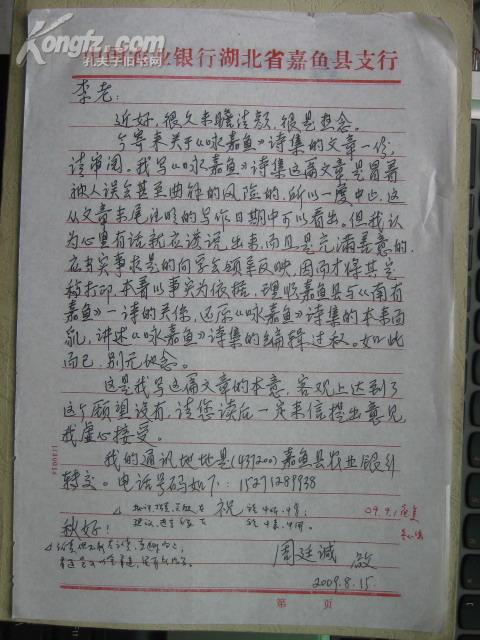 Kongfz.com
孔夫子旧书网
中国农业银行湖北省嘉鱼县支行
李老：
近好，很久未瞻清颜，很是想念。
今寄来关于《咏嘉鱼》诗集的文章一份，
请审阅。我写《咏嘉鱼》诗集这篇文章是冒着
被人误会甚至曲解的风险的，所以一度中止，这
从文章末尾注明的写作日期中可以看出。但我认
为心里有话就应该说出来，而且是充满善意的，
应当实事求是的向学会领导反映，因而才将其定
稿打印，本着以事实为依据，理顺嘉鱼县与《南有
嘉鱼》一诗的关系，还原《咏嘉鱼》诗集的本来面
貌，讲述《咏嘉鱼》诗集的编辑过程。如此
而已，别无他念。
这是我写这篇文章的本意，客观上达到了
这个愿望没有，请您读后一定来信提出意见
我虚心接受。
我的通讯地址是(437200)嘉鱼县农业银行
转交。电话号码如下：15271289938
祝
秋好！
09.9.1
周廷诚 敬
2009.8.15.
第 页